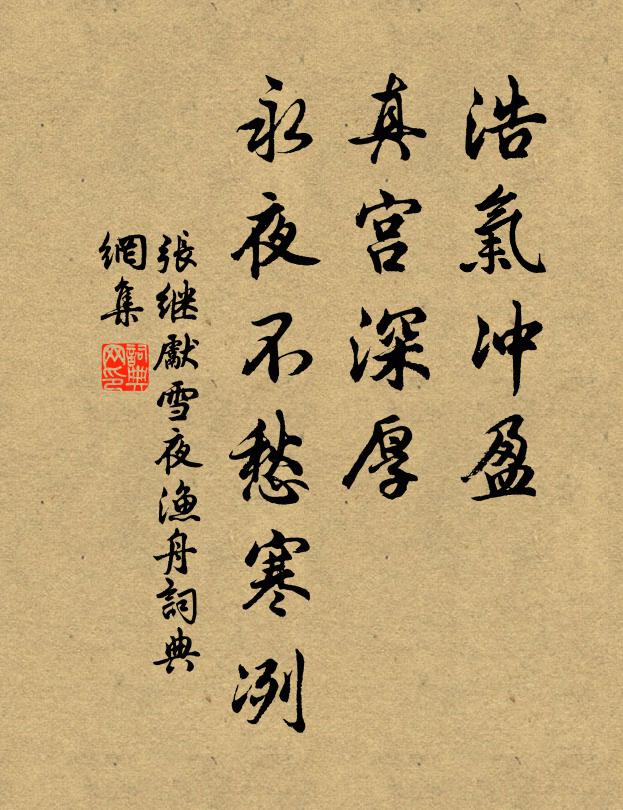 浩氣冲盈
真宫深厚
永夜不愁寒冽
張継獻雪夜漁舟詞典
網集
詞典
网印